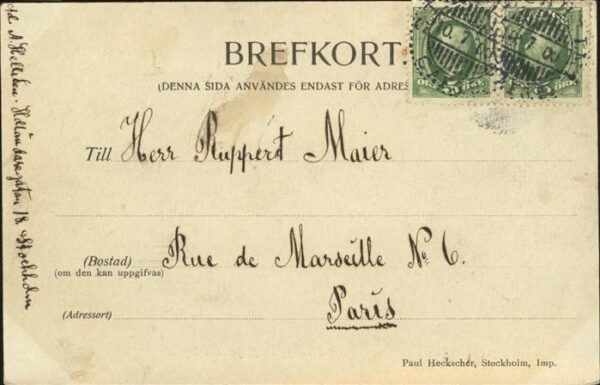 BREFKORT.
(DENNA SIDA ANVÄNDES ENDAST FÖR ADRES
Till Herr Ruppert Maier
(Bostad) Rue de Marseille No 6.
(om den kan uppgifvas)
Paris
(Adressort)
Paul Heckscher, Stockholm, Imp.
A. Hellsten. Holländaregatan 18 Stockholm